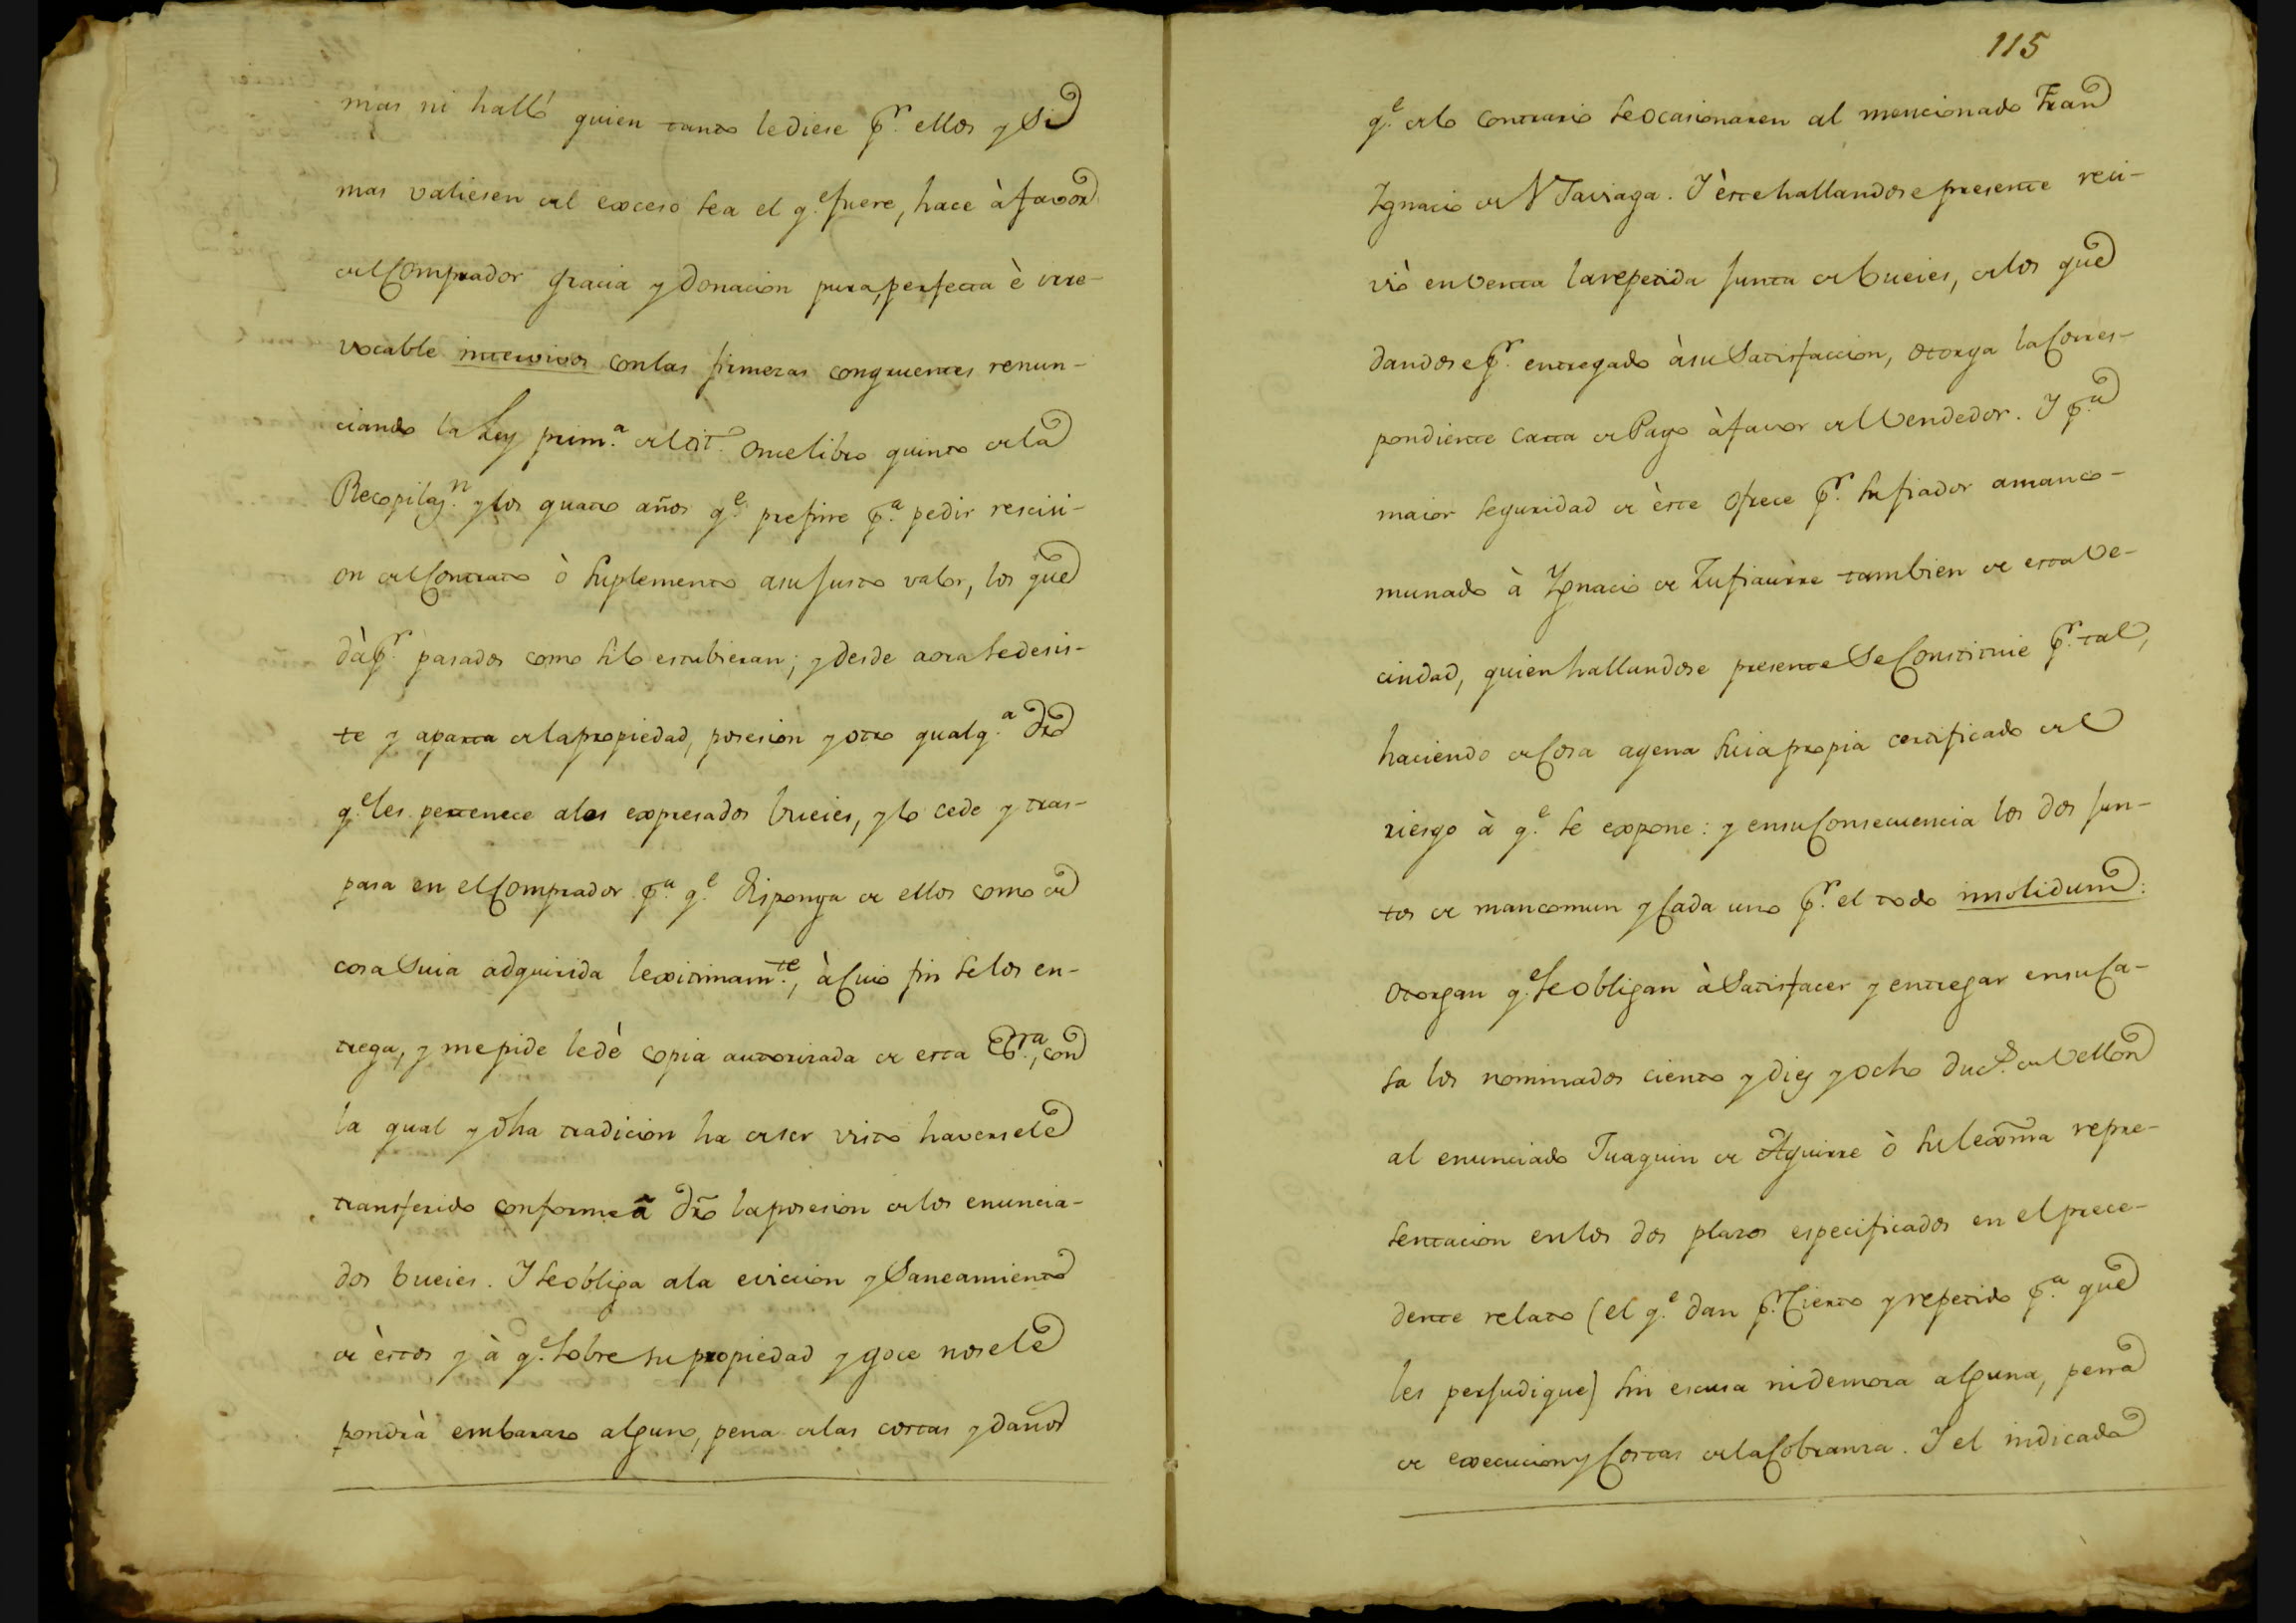 mas ni halló quien tanto le diese pr. ellos y si
mas valiesen del exceso sea el qe. fuere, hace à favor
del Comprador gracia y Donacion pura, perfecta è irre-
vocable intervivos con las firmezas congruentes renun-
ciando la Ley prim.a del tit.o once libro quinto de la
Recopilaz.n y los quatro años q.e prefine p.a pedir rescisi-
on del Contrato ò suplemento a su Justo valor, los que
dà p.r pasados como si lo estubieran; y desde aora se desis-
te y aparta de la propiedad, posesion y otro qualq.a dro
q.e les pertenece a los expresados bueies, y lo cede y tras-
pasa en el Comprador p.a q.e disponga de ellos como de
cosa suia adquirida lexitimam.te, à Cuio fin se los en-
trega, y me pide le dè copia autorizada de esta Esc.ra, con
la qual y dha tradicion ha de ser visto haversele
transferido conforme à dro la posesion de los enuncia-
dos bueies. I se obliga a la eviccion y Saneamiento
de èstos y à q.e sobre su propiedad y goce no se le
pondrà embarazo alguno, pena de las costas y daños
115
q.e de lo contrario se ocasionaren al mencionado Fran
Ignacio de Y Tavaga. I èste hallandose presente reci-
viò en venta la repetida Junta de bueies, de los que
dandose p.r entregado à su Satisfaccion, otorga la Corres-
pondiente carta de Pago à favor del Vendedor. I p.a
maior seguridad de èste ofrece p.r su fiador amanco-
munado à Ignacio de Zufiaurre tambien de esta Ve-
cindad, quien hallandose presente se Constituie p.r tal,
haciendo de Cosa agena suia propia certificado del
riesgo à q.e se expone: y en su Consecuencia los dos Jun-
tos de mancomun y Cada uno p.r el todo insolidum:
Otorgan q.e se obligan à Satisfacer y entregar en su Ca-
sa los nominados ciento y diez y ocho duc.s de Vellon
al enunciado Juaquin de Aguirre ò su lexma repre-
sentacion en los dos plazos especificados en el prece-
dente relato (el q.e dan p.r Cierto y repetido p.a que
les perjudique) sin escusa ni demora alguna, pena
de execucion y Costas de la Cobranza. I el indicado